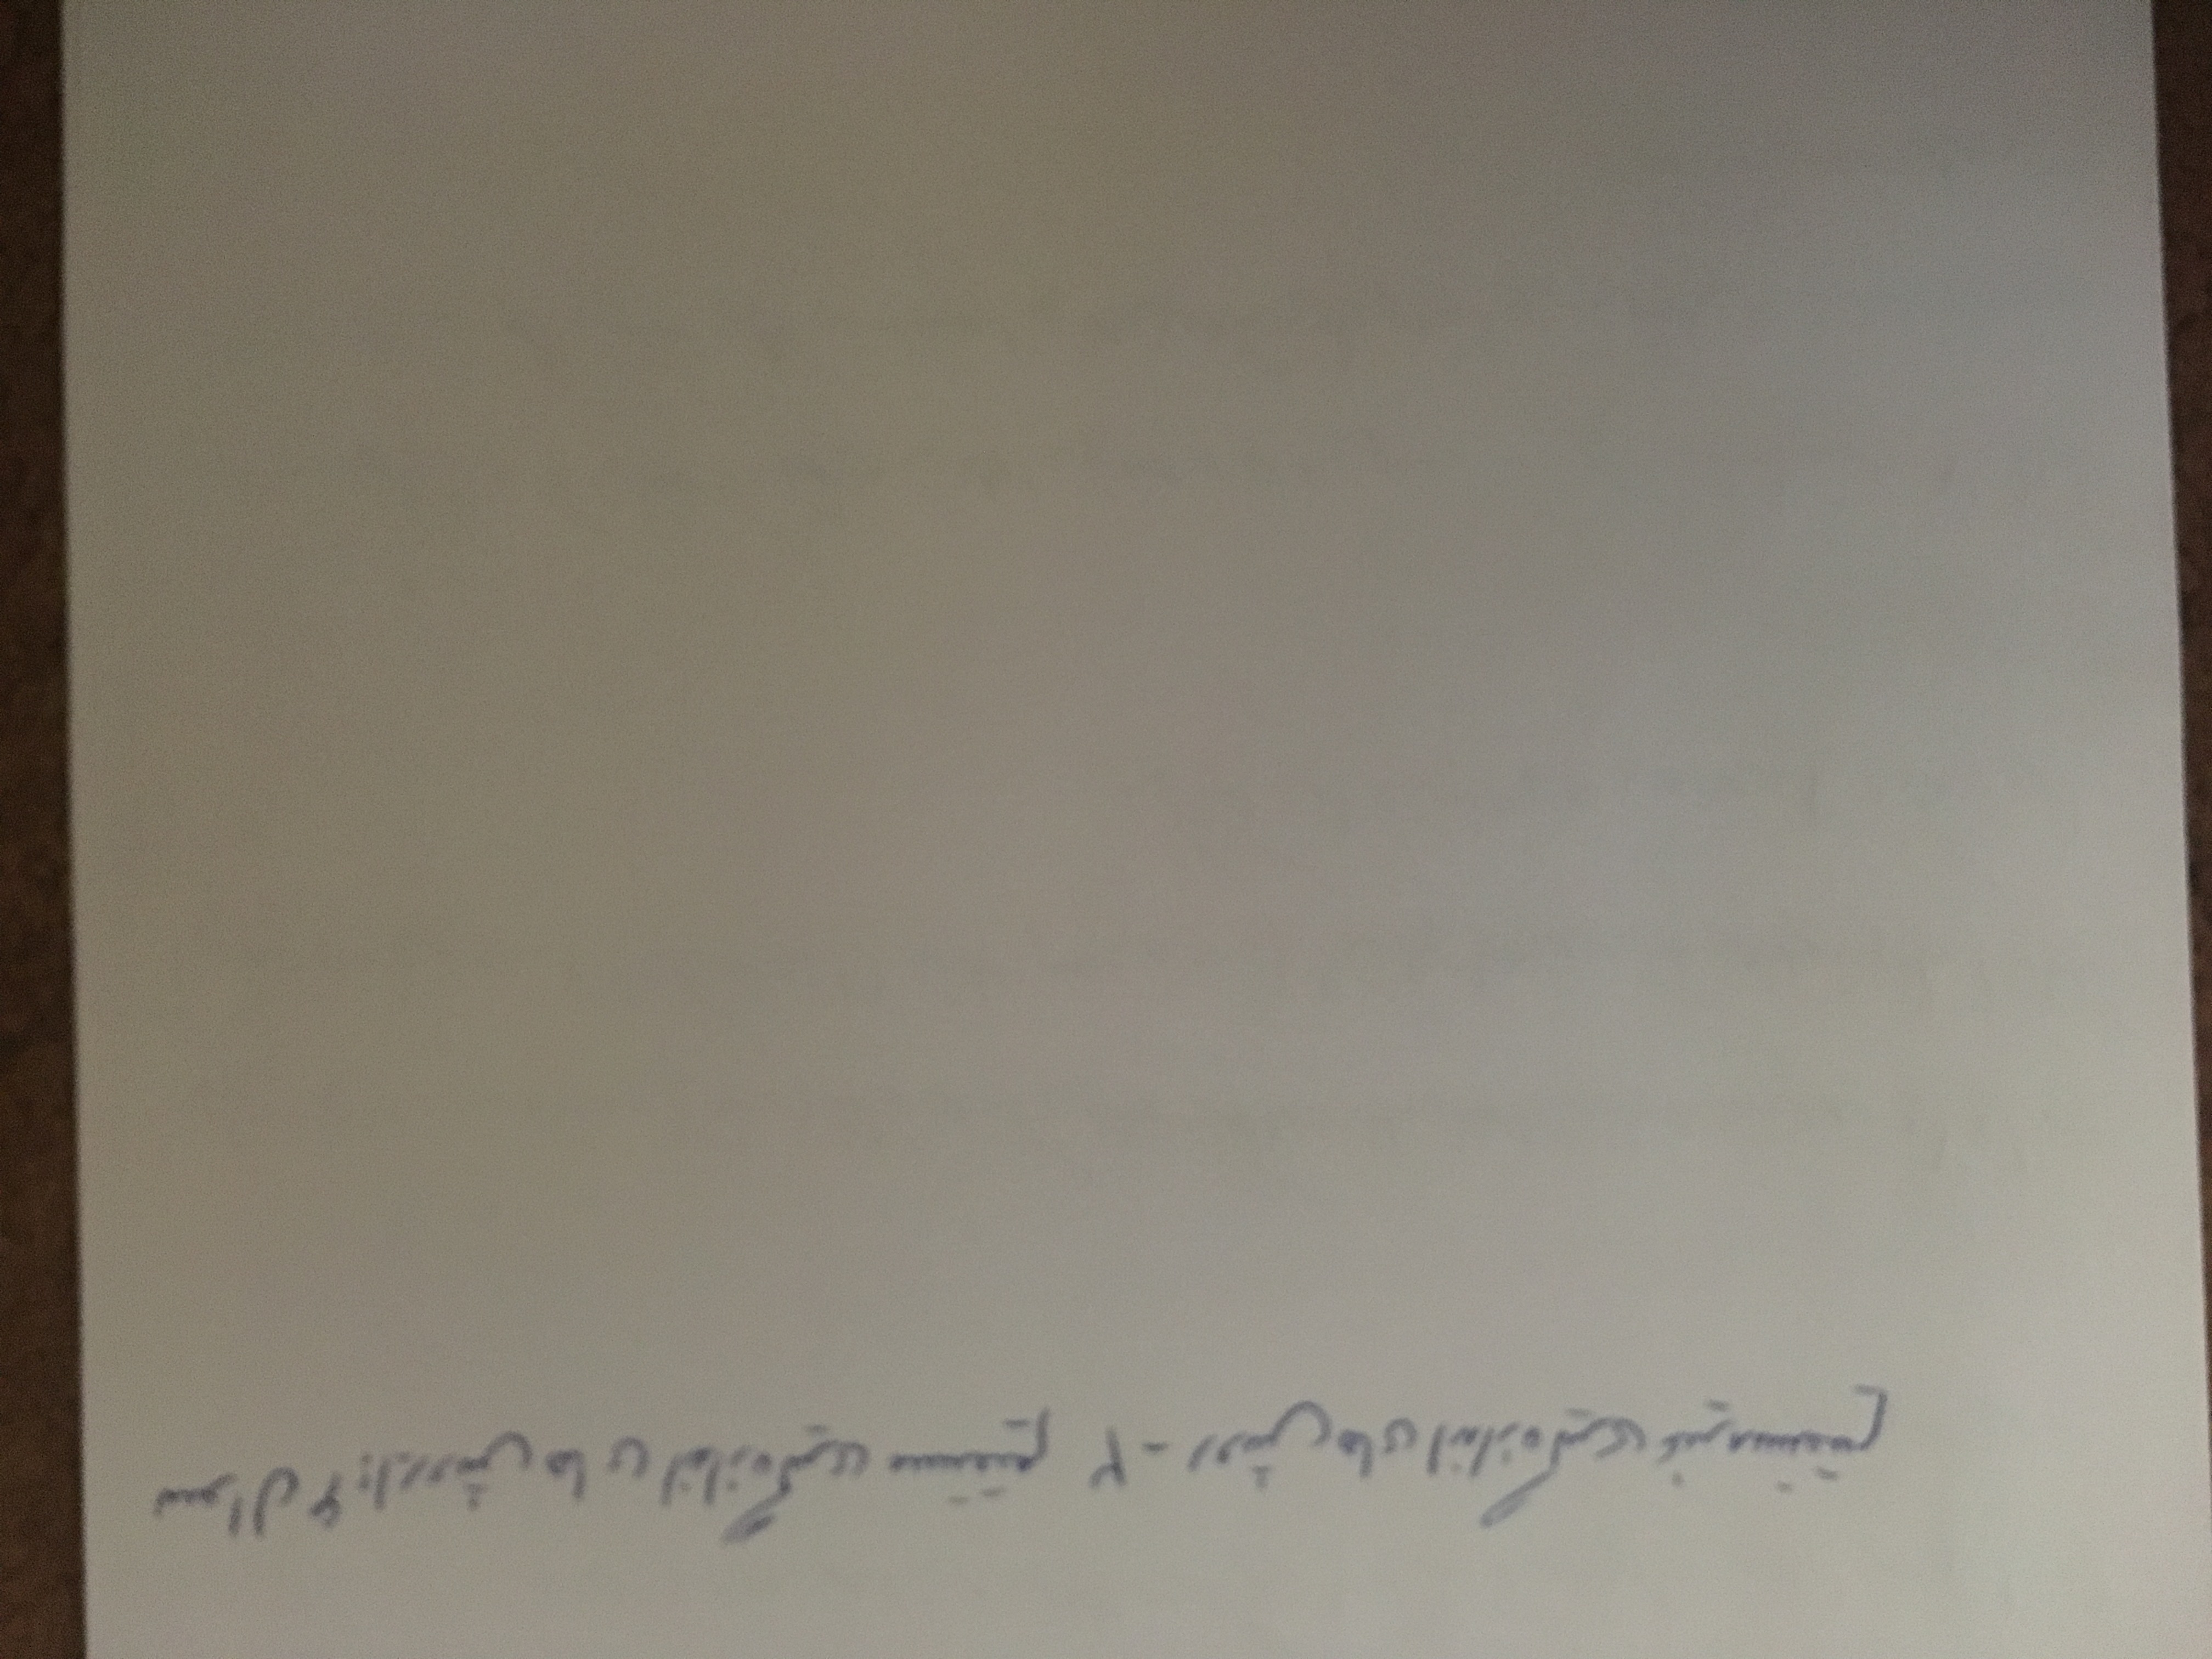 سوال ۶: ۱- روش ها ی اندازه گیری مستقیم ۲- روش های اندازه گیری غیر مستقیم